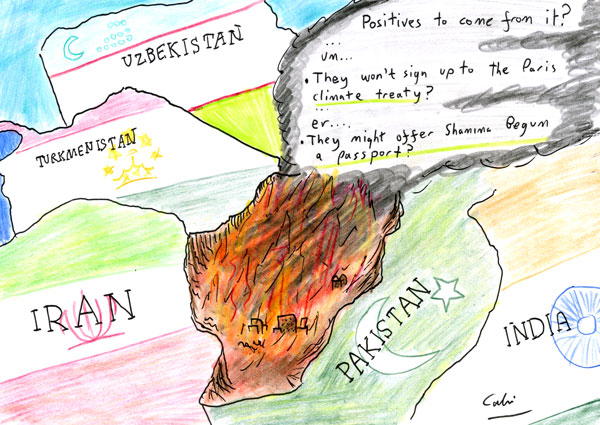 Positives to come from it?
...
um...
• They won't sign up to the Paris
climate treaty?
...
er....
• They might offer Shamima Begum
a passport?
UZBEKISTAN
TURKMENISTAN
IRAN
PAKISTAN
INDIA